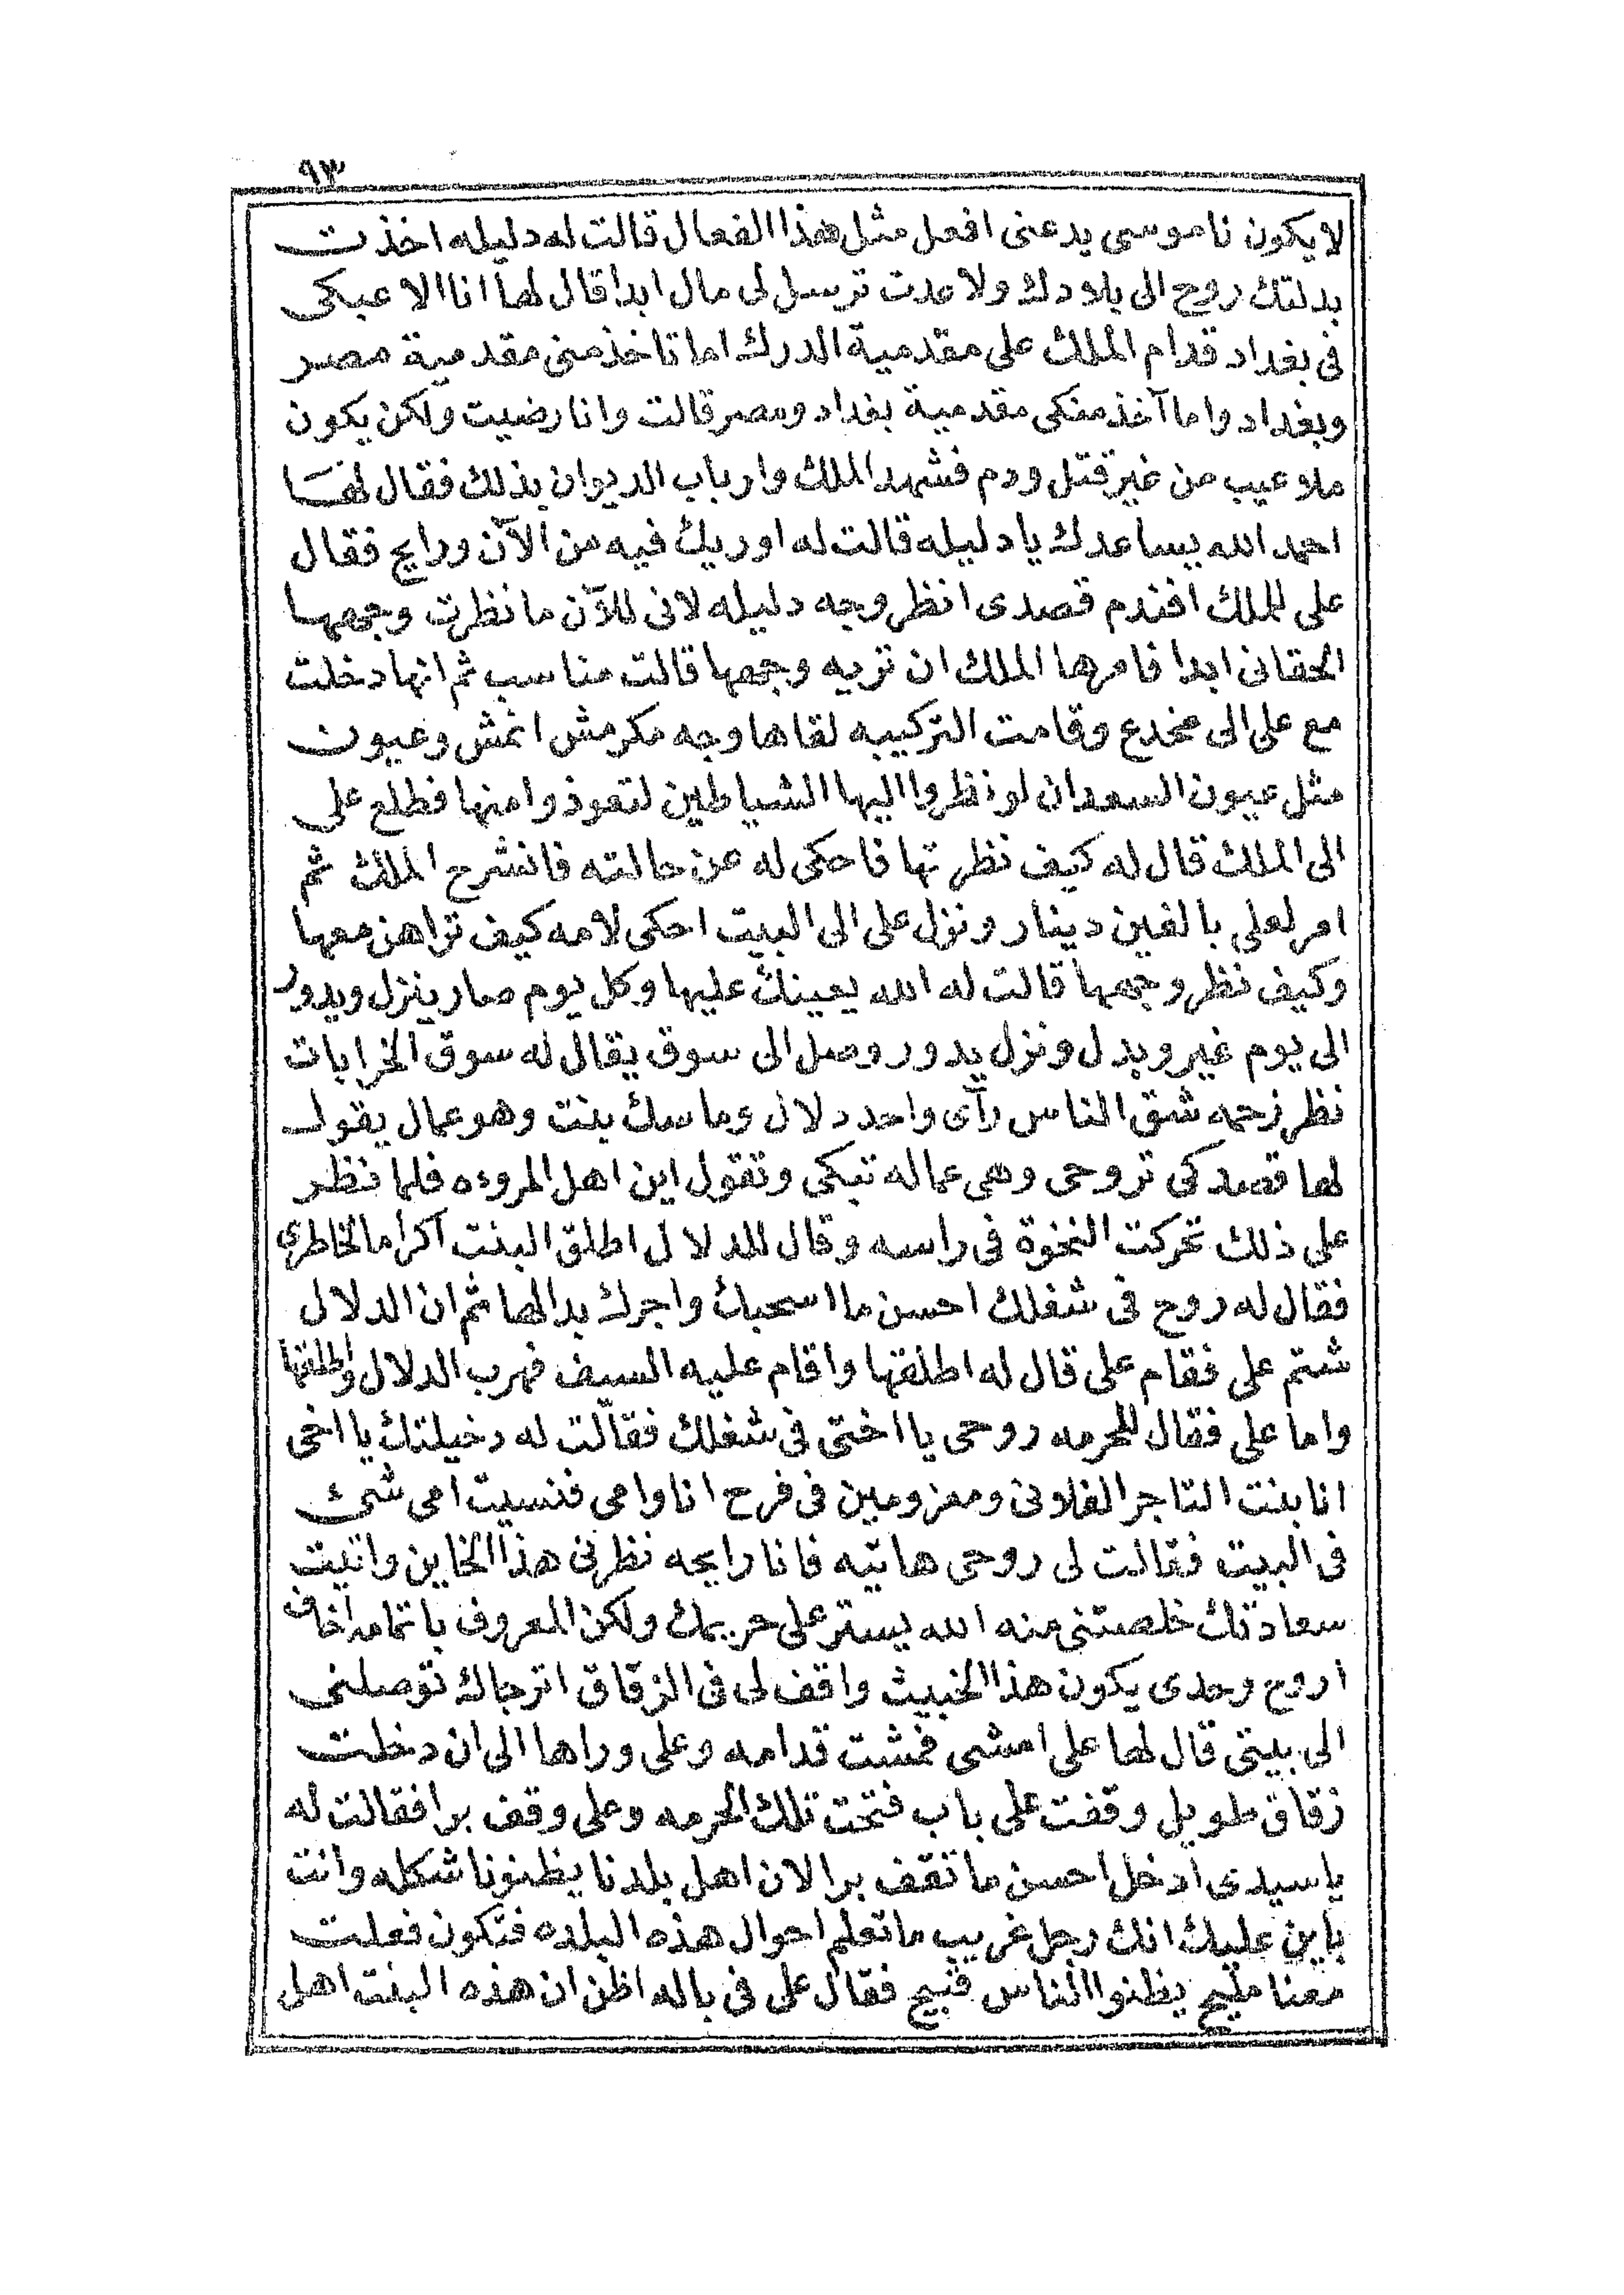 ٩٣
لا يكون ناموسى يدعنى افعل مثل هذا الفعال قالت له دليله اخذت
بدلتك روح الى بلادك ولا عدت ترسل لى مال ابدا قال لها انا الاعبكى
فى بغداد قدام الملك على مقدمية الدرك اما تاخذ منى مقدمية مصر
وبغداد واما آخذ منكى مقدمية بغداد ومصر قالت وانا رضيت ولكن يكون
ملاعيب من غير قتل ودم فشهد الملك وارباب الديوان بذلك فقال لها
احمد الله يساعدك يا دليله قالت له اوريك فيه من الآن ورايح فقال
على للملك افندم قصدى انظر وجه دليله لانى للآن ما نظرت وجهها
الحقانى ابدا فامرها الملك ان تريه وجهها قالت مناسب ثم انها دخلت
مع على الى مخدع وقامت التركيبه لقاها وجه مكرمش انمش وعيون
مثل عيون السعدان لو نظروا اليها الشياطين لتعوذوا منها فطلع على
الى الملك قال له كيف نظرتها فاحكى له عن حالته فانشرح الملك ثم
امر لعلى بالفين دينار ونزل على الى البيت احكى لامه كيف تراهن معها
وكيف نظر وجهها قالت له الله يعينك عليها وكل يوم صار ينزل ويدور
الى يوم غير وبدل ونزل يدور وصل الى سوق يقال له سوق الخرابات
نظر زحمه شق الناس رآى واحد دلال وماسك بنت وهو عمال يقول
لها قصدكى تروحى وهى عماله تبكى وتقول اين اهل المروءه فلما نظر
على ذلك تحركت النخوة فى راسه وقال للدلال اطلق البنت آكراما لخاطرى
فقال له روح فى شغلك احسن ما اسحبك واجرك بدالها ثم ان الدلال
شتم على فقام على قال له اطلقها واقام عليه السيف فهرب الدلال واطلقها
واما على فقال للحرمه روحى يا اختى فى شغلك فقالت له دخيلتك يا اخى
انا بنت التاجر الفلانى ومعزومين فى فرح انا وامى فنسيت امى شئ
فى البيت فقالت لى روحى هاتيه فانا رايحه نظرنى هذا الخاين واتيت
سعادتك خلصتنى منه الله يستر على حريمك ولكن المعروف باتمامه اخاف
اروح وحدى يكون هذا الخبيث واقف لى فى الزقاق اترجاك توصلنى
الى بيتى قال لها على امشى فمشت قدامه وعلى وراها الى ان دخلت
زقاق طويل وقفت على باب فتحت تلك الحرمه وعلى وقف برا فقالت له
يا سيدى ادخل احسن ما تقف برا لان اهل بلدنا يظنونا شكله وانت
باين عليك انك رجل غريب ما تعلم احوال هذه البلده فتكون فعلت
معنا مليح يظنوا الناس قبيح فقال على فى باله اظن ان هذه البنت اهل